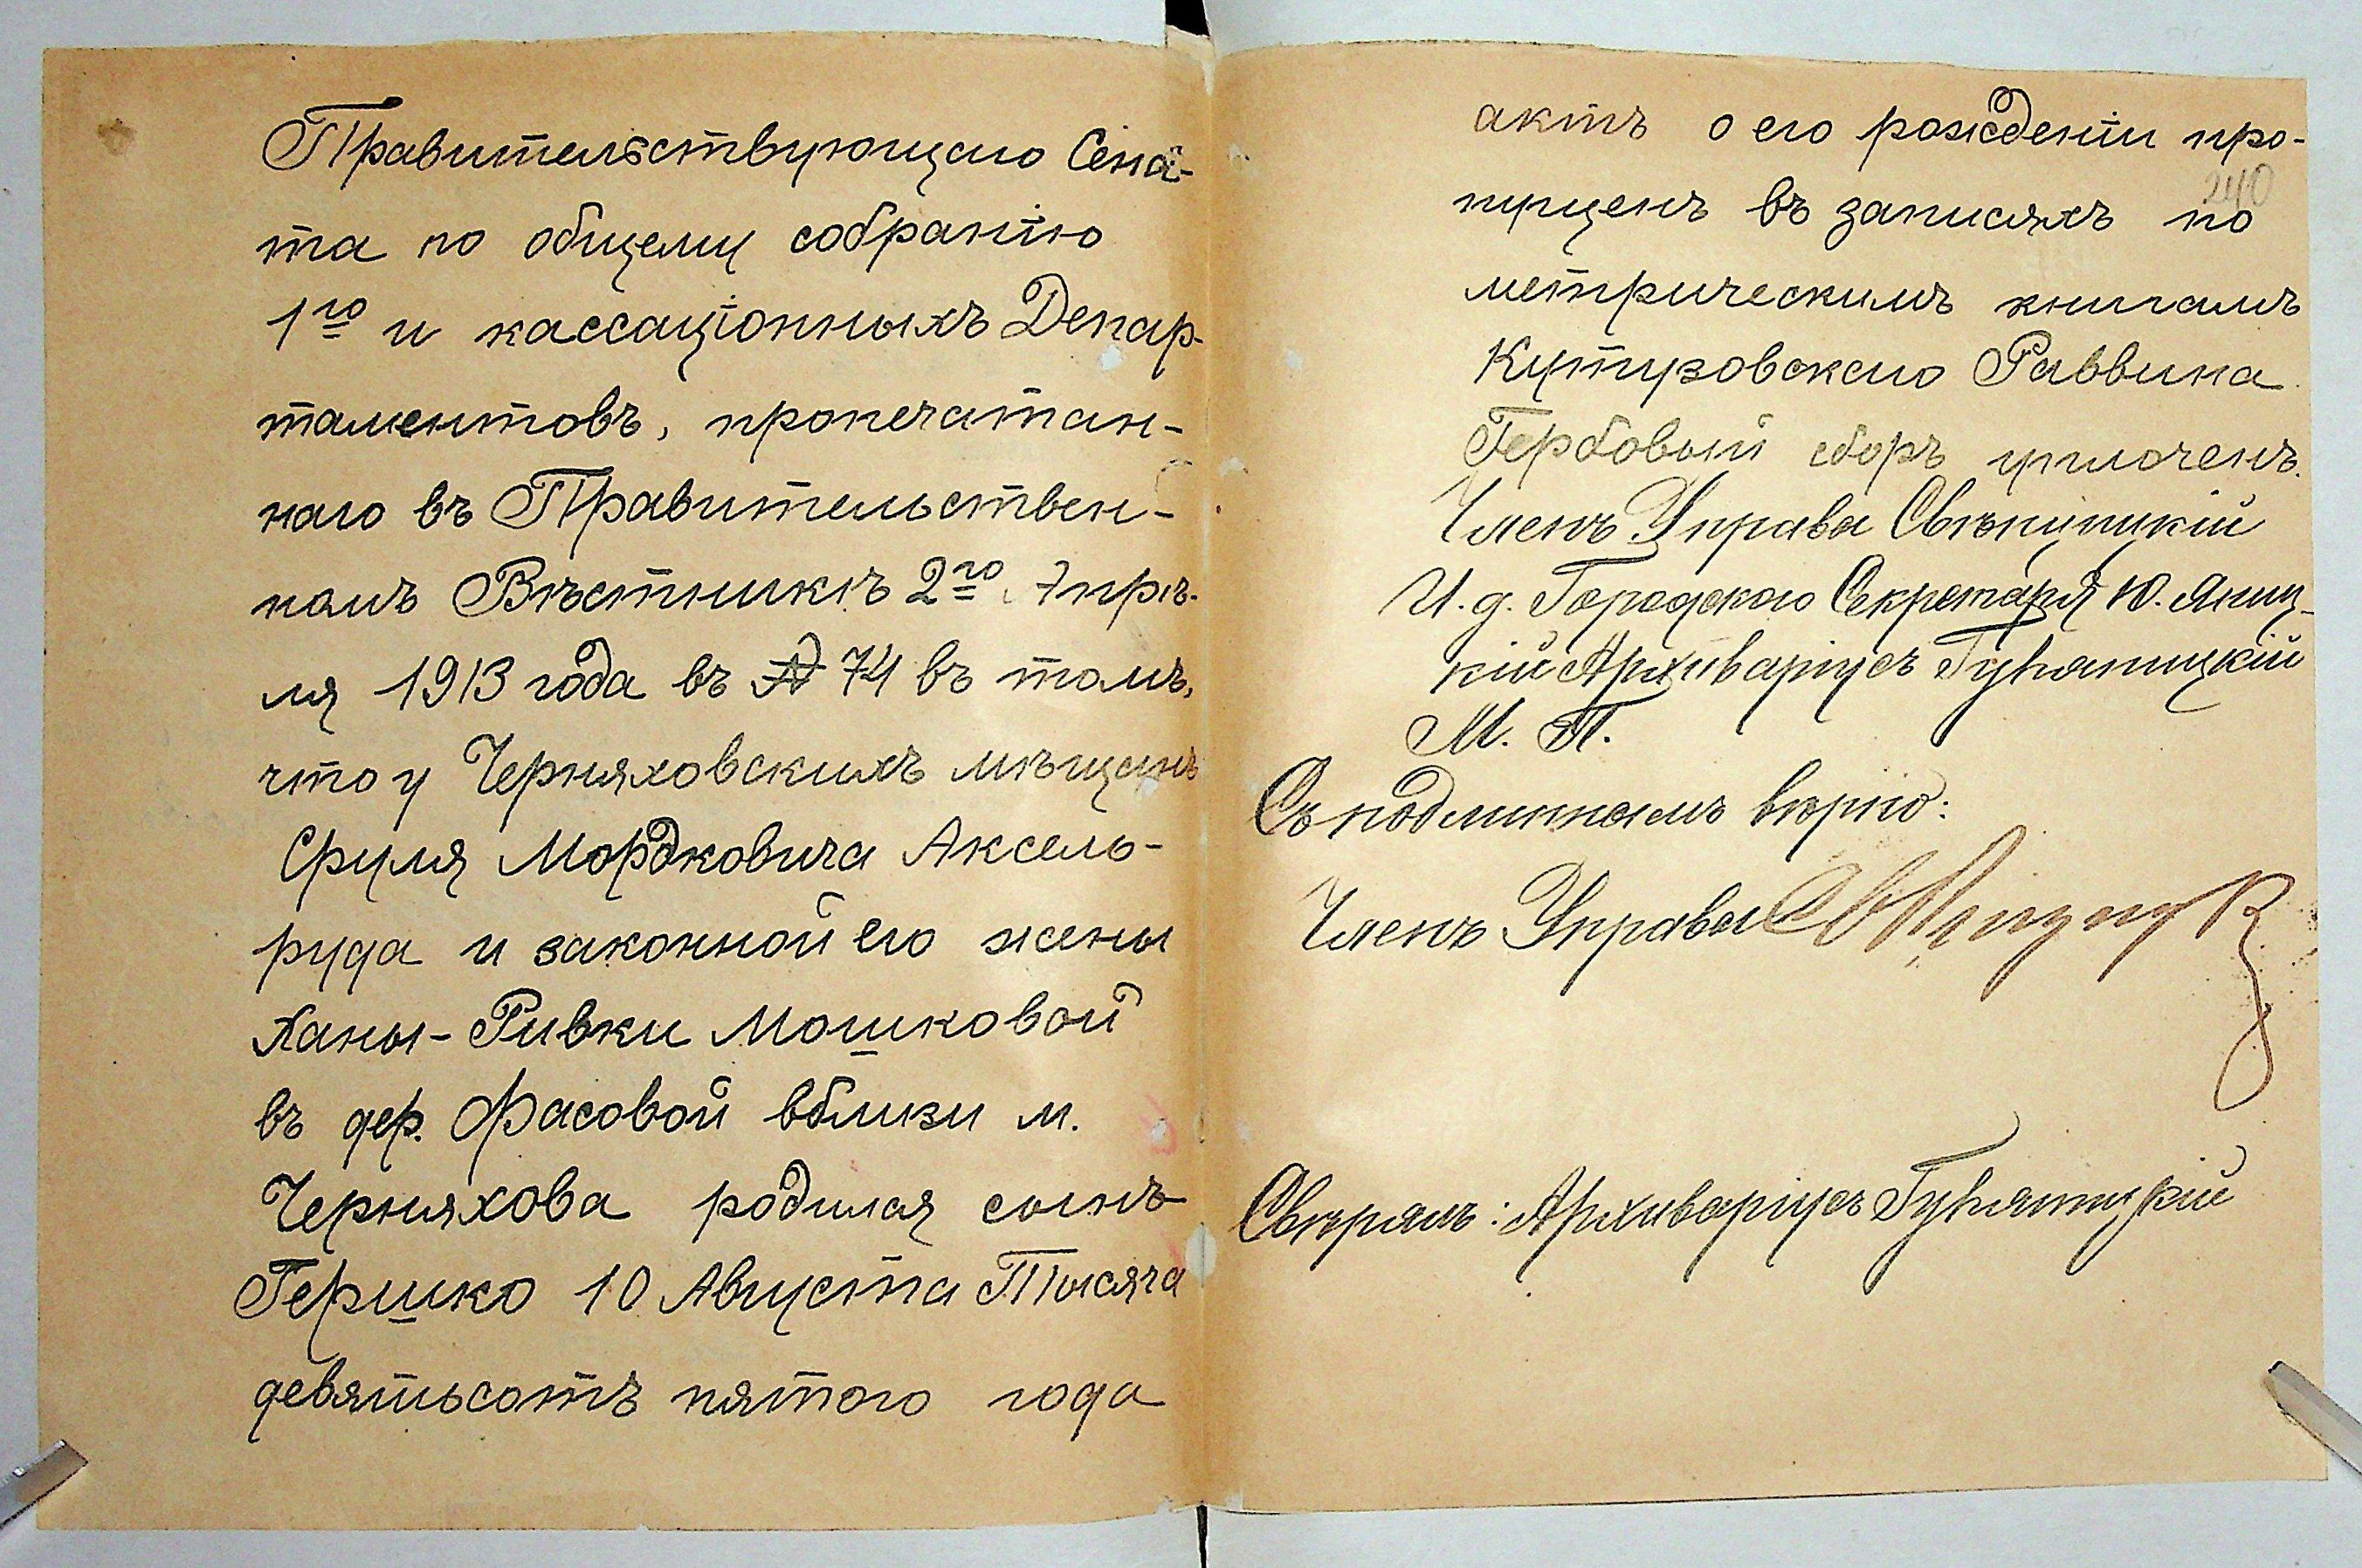 Правительствующаго Сена-
та по общему собранію
1го и кассаціонныхъ Депар-
таментовъ, пропечатан-
наго въ Правительствен-
номъ Вѣстникѣ 2го Апрѣ-
ля 1913 года въ № 74 въ томъ,
что у Черняховскихъ мѣщанъ
Сруля Мордковича Аксель-
руда и законной его жены
Ханы-Ривки Мошковой
въ дер. Фасовой вблизи м.
Черняхова родился сынъ
Гершко 10 Августа Тысяча
девятьсотъ пятого года
актъ о его рожденіи про-
240
пущенъ въ записяхъ по
метрическимъ книгамъ
Кутузовскаго Раввина
Гербовый сборъ уплоченъ.
Членъ Управы
И. д. Городского Секретаря Ю. Яниц-
кій Архиваріусъ
М. П.
Съ подлиннымъ вѣрно:
Членъ Управы
Свѣрялъ: Архиваріусъ